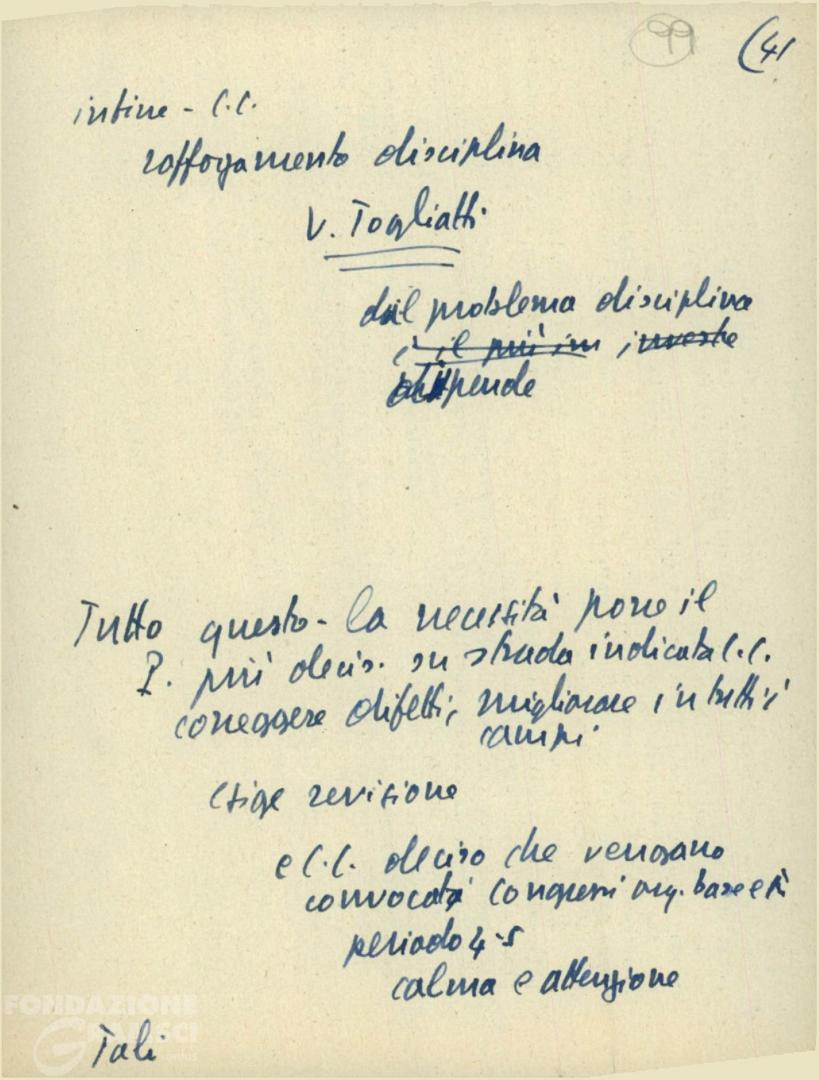 99 (41
infine - C.C.
rafforzamento disciplina
V. Togliatti
dal problema disciplina
è il più im investe
dipende
Tutto questo - la necessità porre il
P. più decis. su strada indicata C.C.
correggere difetti, migliorare in tutti i
campi
Esige revisione
e C.C. deciso che vengano
convocati congressi org. base e
periodo 4-5
calma e attenzione
Tali
FONDAZIONE
GRAMSCI